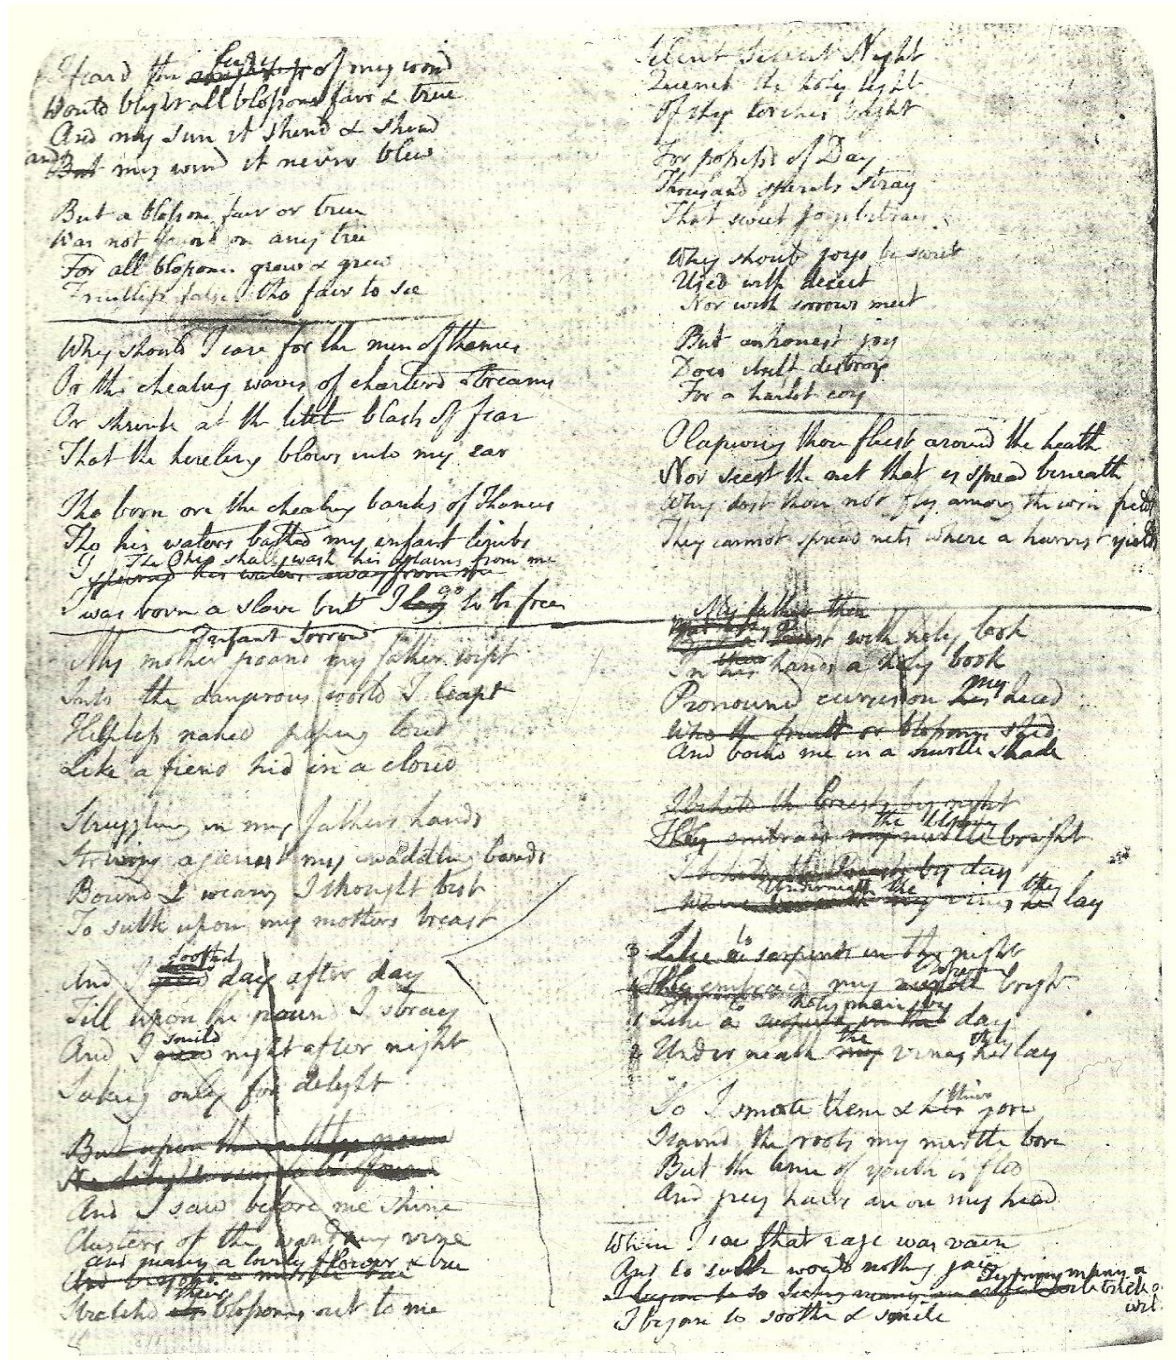 I feard the fury of my wind
Would blight all blossoms fair & true
And my sun it shind & shind
and But my wind it never blew
But a blossom fair or true
Was not found on any tree
For all blossoms grew & grew
Fruitless false tho fair to see
Why should I care for the men of thames
Or the cheating waves of charterd streams
Or shrink at the little blasts of fear
That the hireling blows into my ear
Tho born on the cheating banks of Thames
Tho his waters bathed my infant limbs
The Ohio shall wash his stains from me
I spurnd his waters away from me
I was born a slave but I long go to be free
Infant Sorrow
My mother groand my father wept
Into the dangerous world I leapt
Helpless naked piping loud
Like a fiend hid in a cloud
Struggling in my fathers hands
Striving against my swadling bands
Bound & weary I thought best
To sulk upon my mothers breast
soothd
And I day after day
Till upon the ground I stray
smild
And I grew night after night
Seeking only for delight
But upon the nettly ground
No delight was to be found
And I saw before me shine
Clusters of the wandring vine
and many a lovely flower & tree
And beyond a mirtle tree
their
Stretchd blossoms out to me
Silent Silent Night
Quench the holy light
Of thy torches bright
For possessd of Day
Thousand spirits stray
That sweet joys betray
Why should joys be sweet
Used with deceit
Nor with sorrows meet
But an honest joy
Does itself destroy
For a harlot coy
O lapwing thou fliest around the heath
Nor seest the net that is spread beneath
Why dost thou not fly among the corn fields
They cannot spread nets where a harvest yields
My father then
with holy look
In his hands a holy book
Pronouncd curses on his my head
Who the fruit or blossoms shed
And bound me in a mirtle shade
I beheld the Priests by night
the blossoms
They embracd my mirtle bright
I beheld the Priests by day
Underneath the they
Where beneath my vines he lay
3 Like to serpents in the night
4 They embracd my blossoms mirtle bright
to holy men by
1 Like a serpent in the day
the they
2 Underneath my vines he lay
So I smote them & their gore
Staind the roots my mirtle bore
But the time of youth is fled
And grey hairs are on my head
When I saw that rage was vain
And to sulk would nothing gain
Turning many a trick & wile
I began to soothe & smile